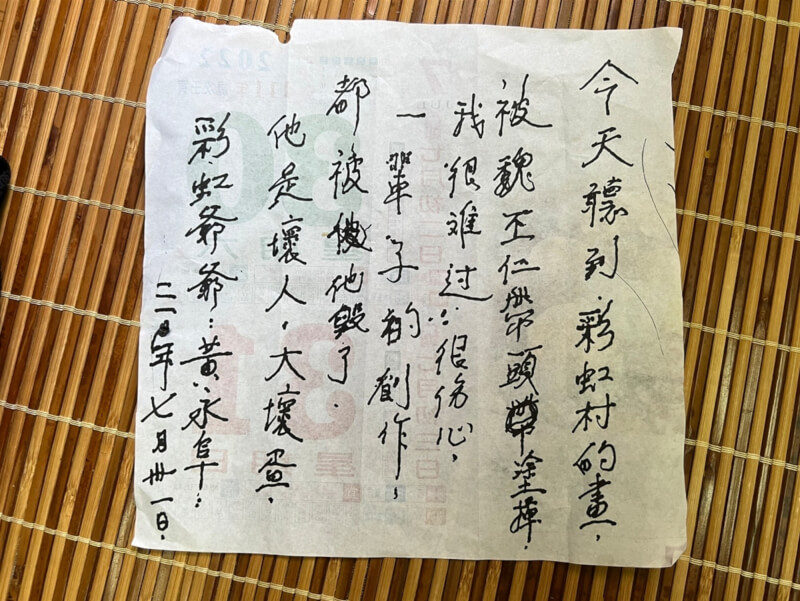 今天聽到彩虹村的畫，
被魏丕仁帶頭帶塗掉，
我很难过，很伤心，
一輩子的創作，
都被他毀了．
他是壞人，大壞蛋，
彩虹爷爷：黃永阜：
二二年七月卅一日．
2022